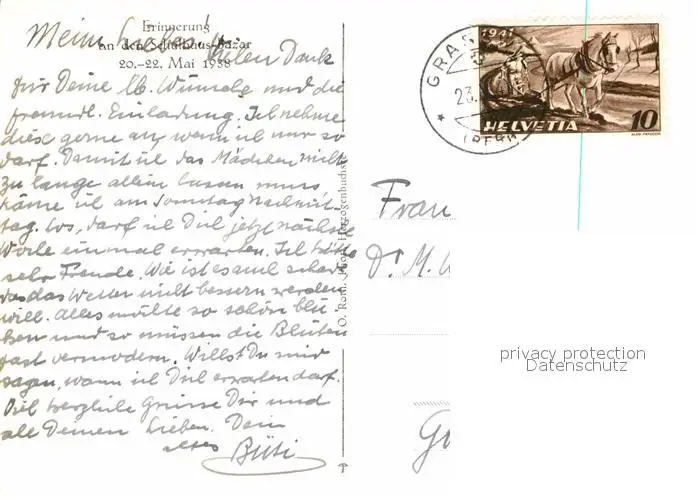 Erinnerung
an den Schulhaus-Bazar
20.–22. Mai 1938
Mein Liebes! Vielen Dank
für Deine lb. Wünsche und die
freundl. Einladung. Ich nehme
diese gerne an, wenn ich nur so
darf. Damit ich das Mädchen nicht
zu lange allein lassen muss
käme ich am Sonntag Nachmit-
tag. So, darf ich Dich jetzt nächste
Woche einmal erwarten. Ich hätte
sehr Freude. Wie ist es auch schade
das das Wetter nicht bessern werden
will. Alles wollte so schön blü-
hen und so müssen die Blüten
fast vermodern. Willst Du mir
sagen, wann ich Dich erwarten darf.
Viel herzliche Grüsse Dir und
alle Deinen Lieben. Dein
altes
Büsi
O. Roth, Photo, Herzogenbuchsee
GRAS
23.
(BERN)
1941
HELVETIA
10
Frau
Dr. M. W
G
privacy protection
Datenschutz